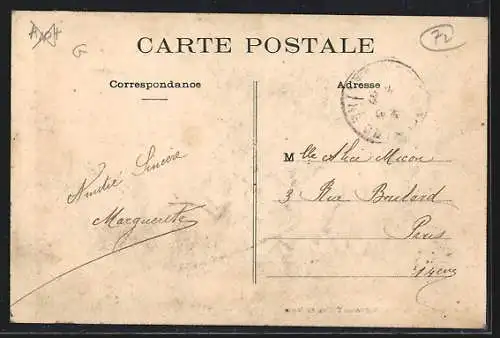 G
72
CARTE POSTALE
Correspondance
Adresse
Mlle Alice Micon
3 Rue Boulard
Paris
14eme
Amitié Sincère
Marguerite